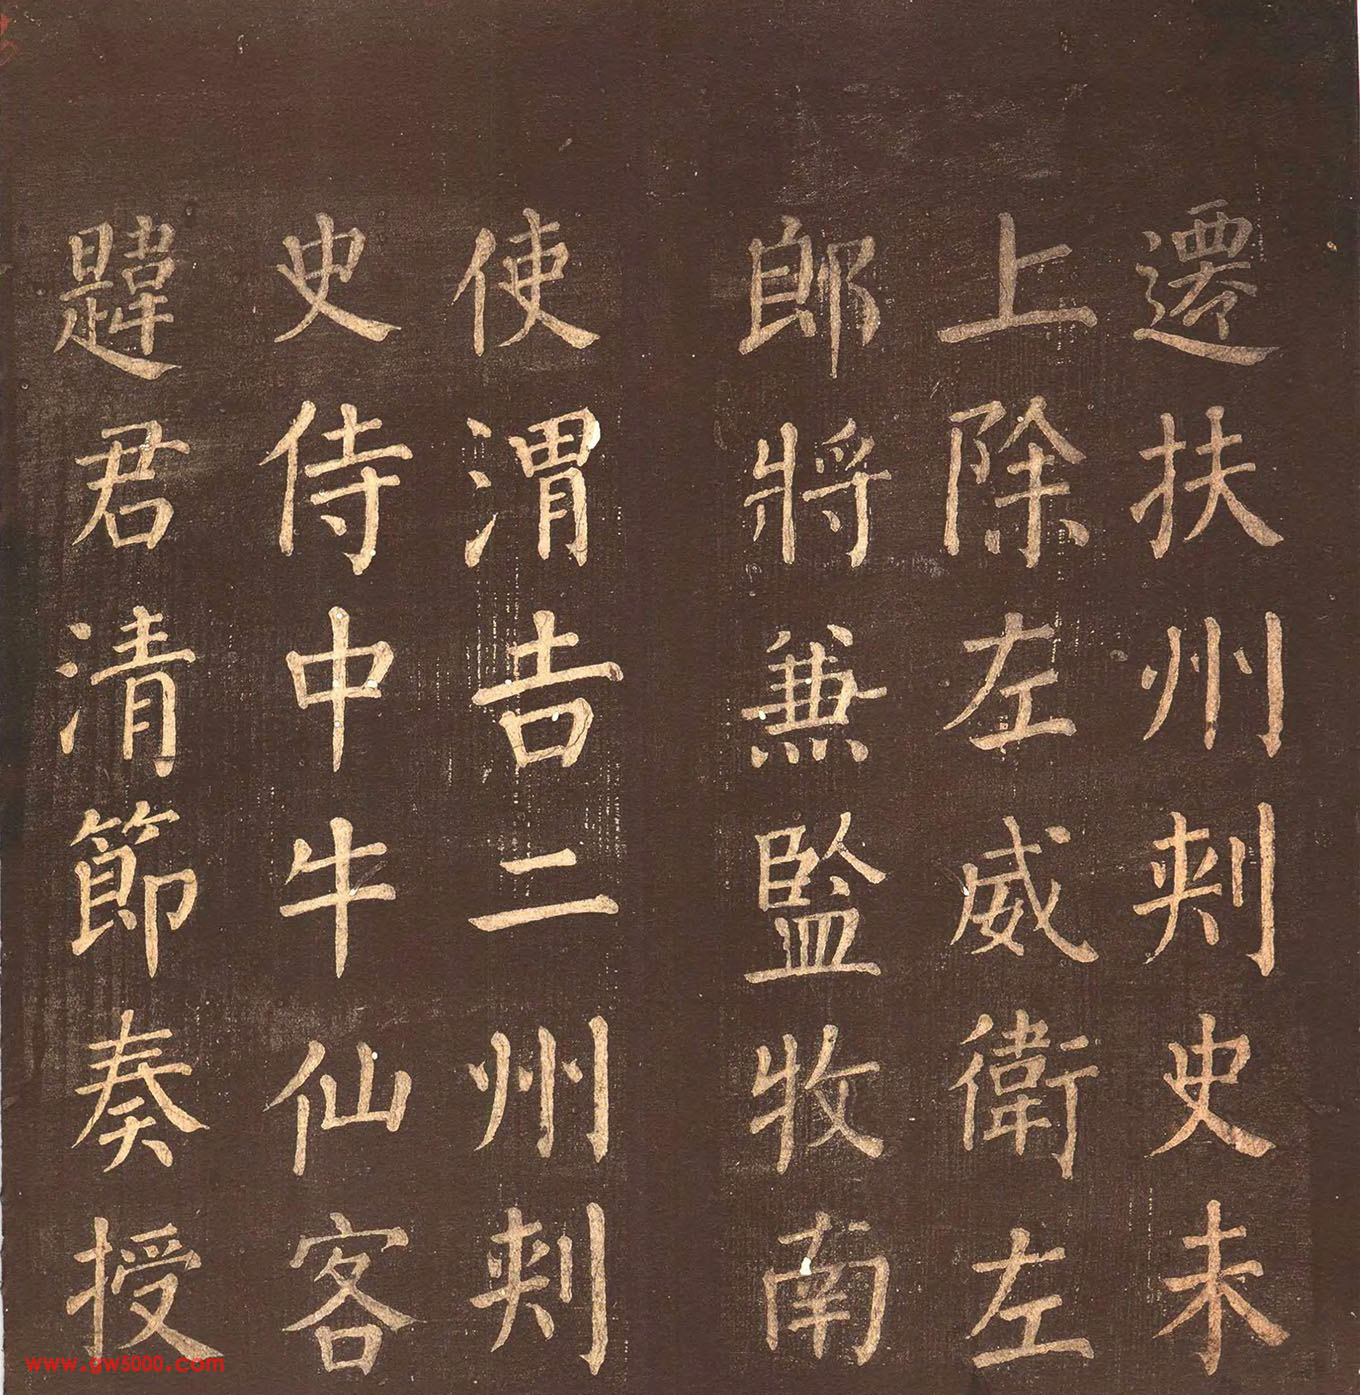 遷扶州刾史未
上除左威衛左
郎將兼監牧南
使渭吉二州刾
史侍中牛仙客
韙君清節奏授
www.gw5000.com